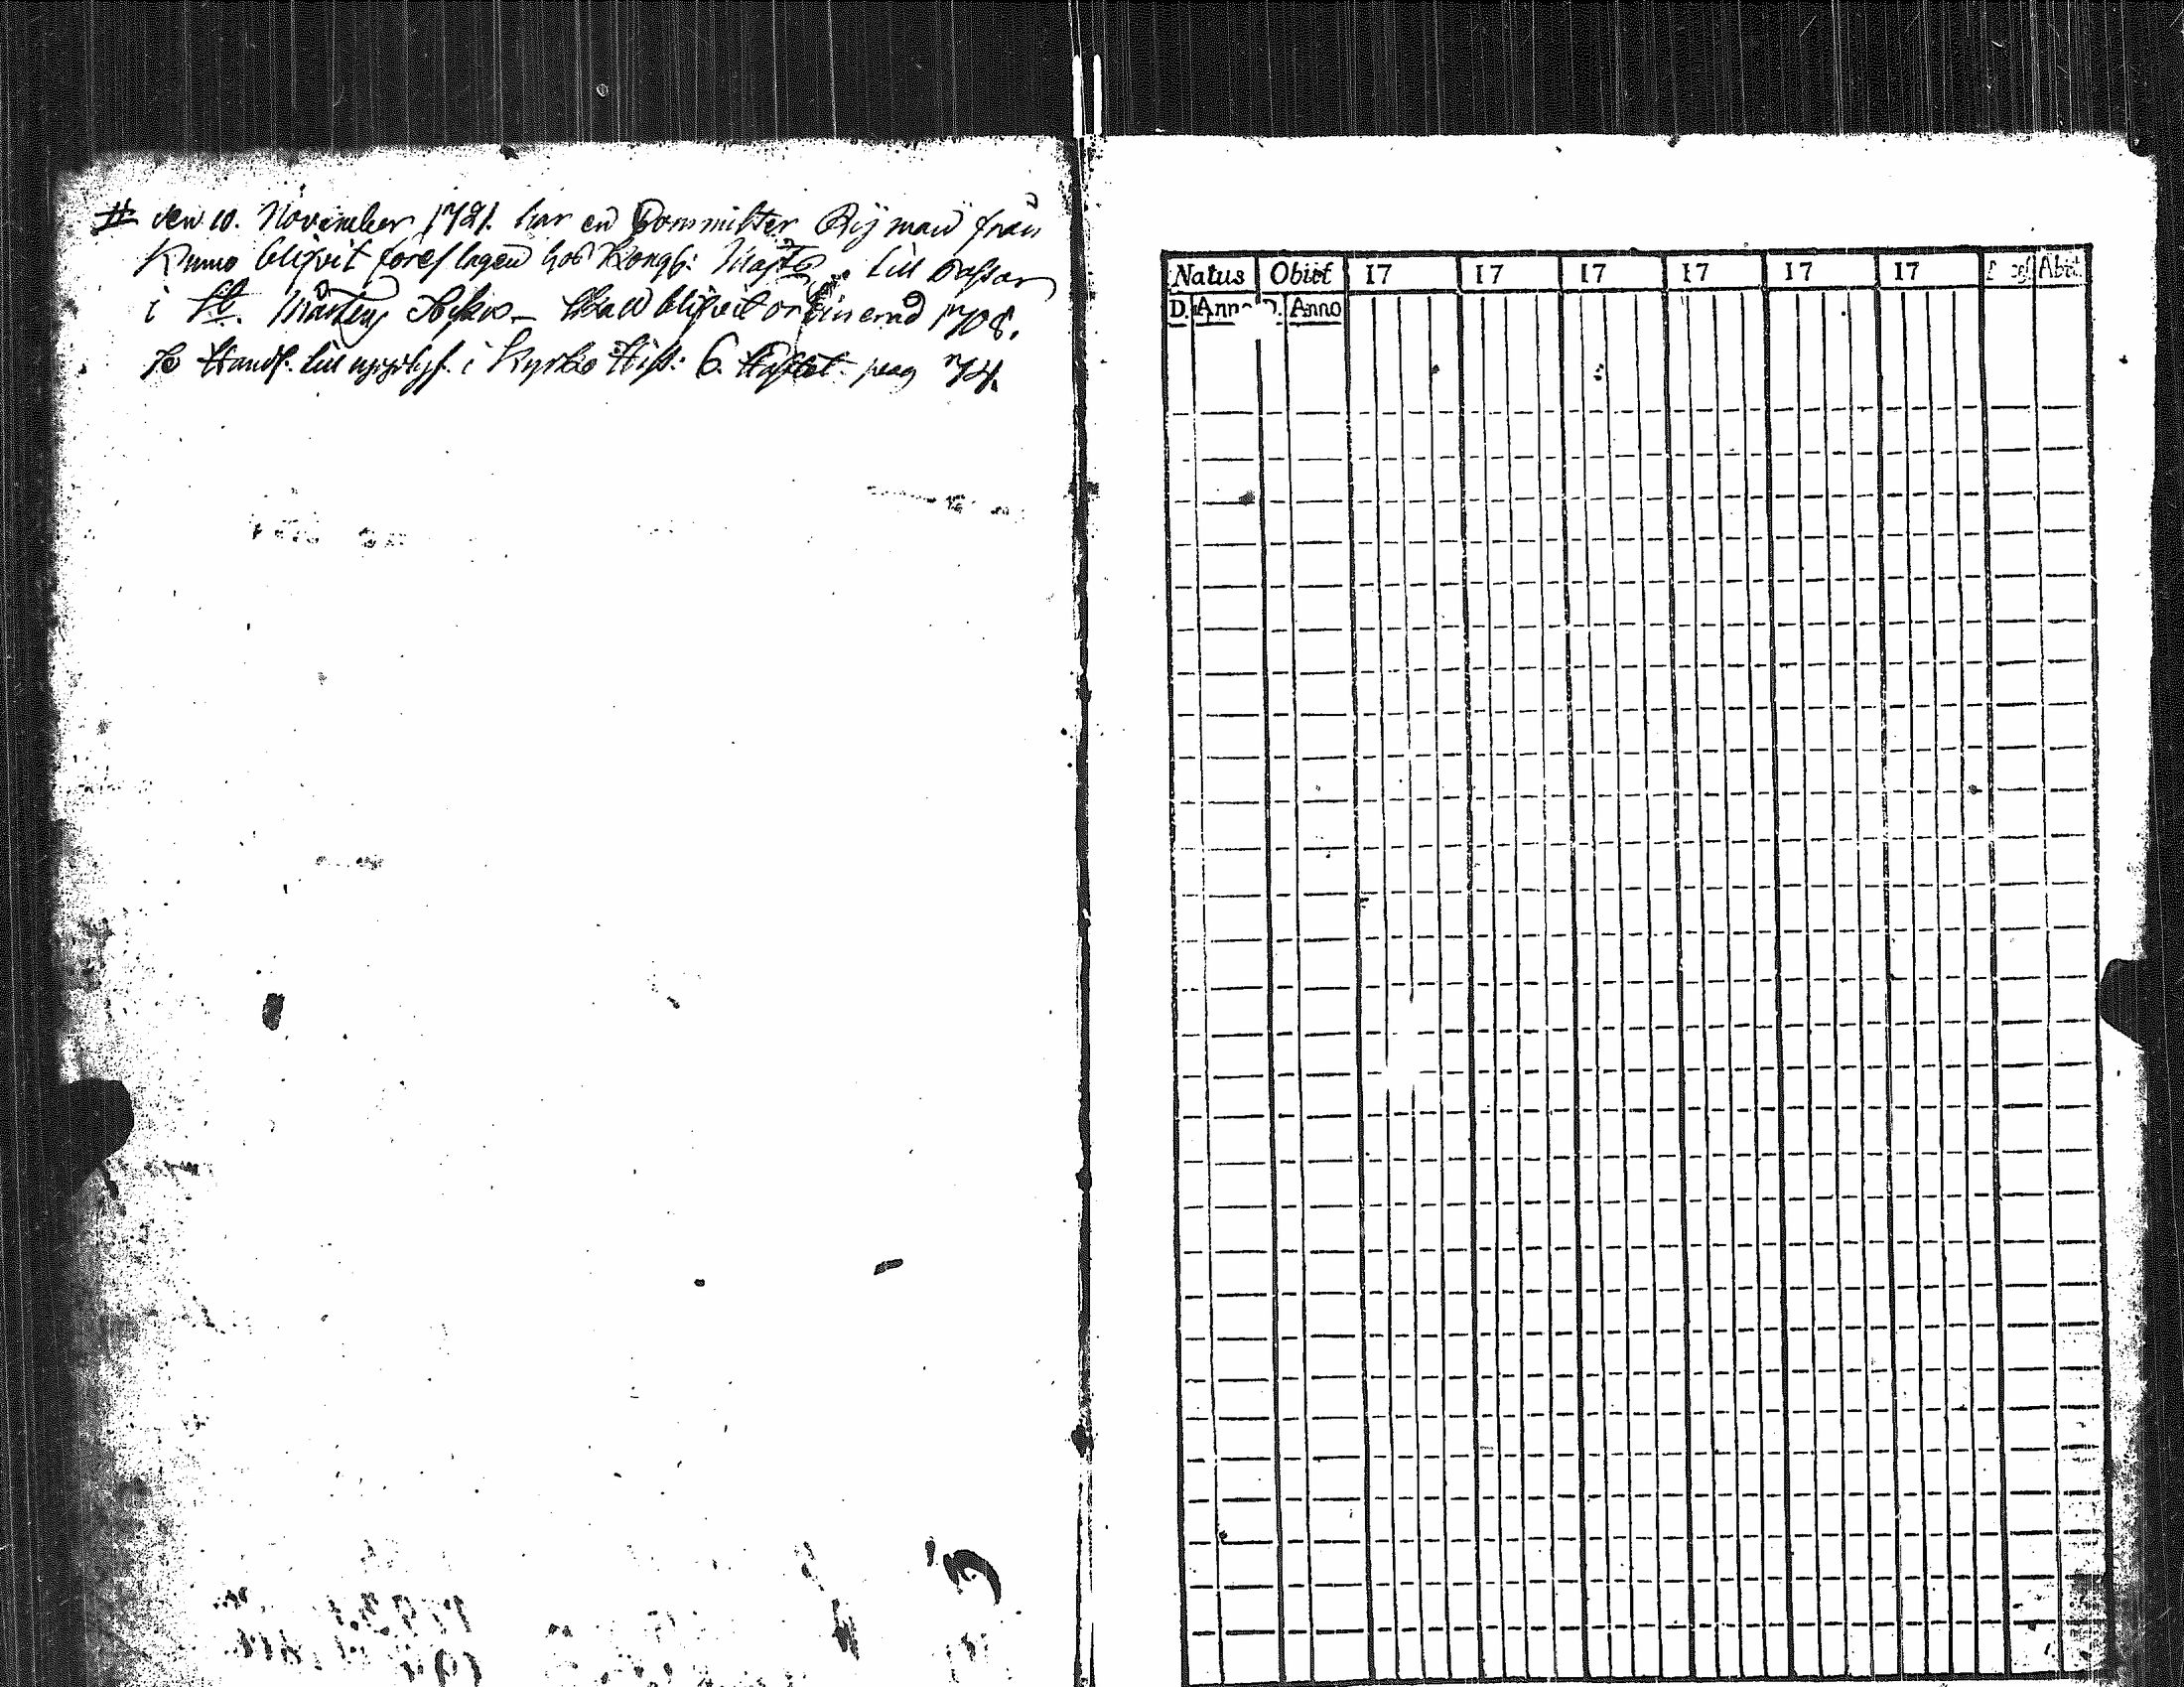 # den 10. November 1721. har en Comminister Ryman från
Kumo blifvit föreslagen hos Kongl: Majt till Cappellan
i St. Mårtens Sokn — skall blifvit ordinerad 1708.
Se Handl. till uplysn. i Kyrko Hist: 6. Häftet pag 74.
Natus Obiit 17 17 17 17 17 17 Abit.
D. Anno D. Anno